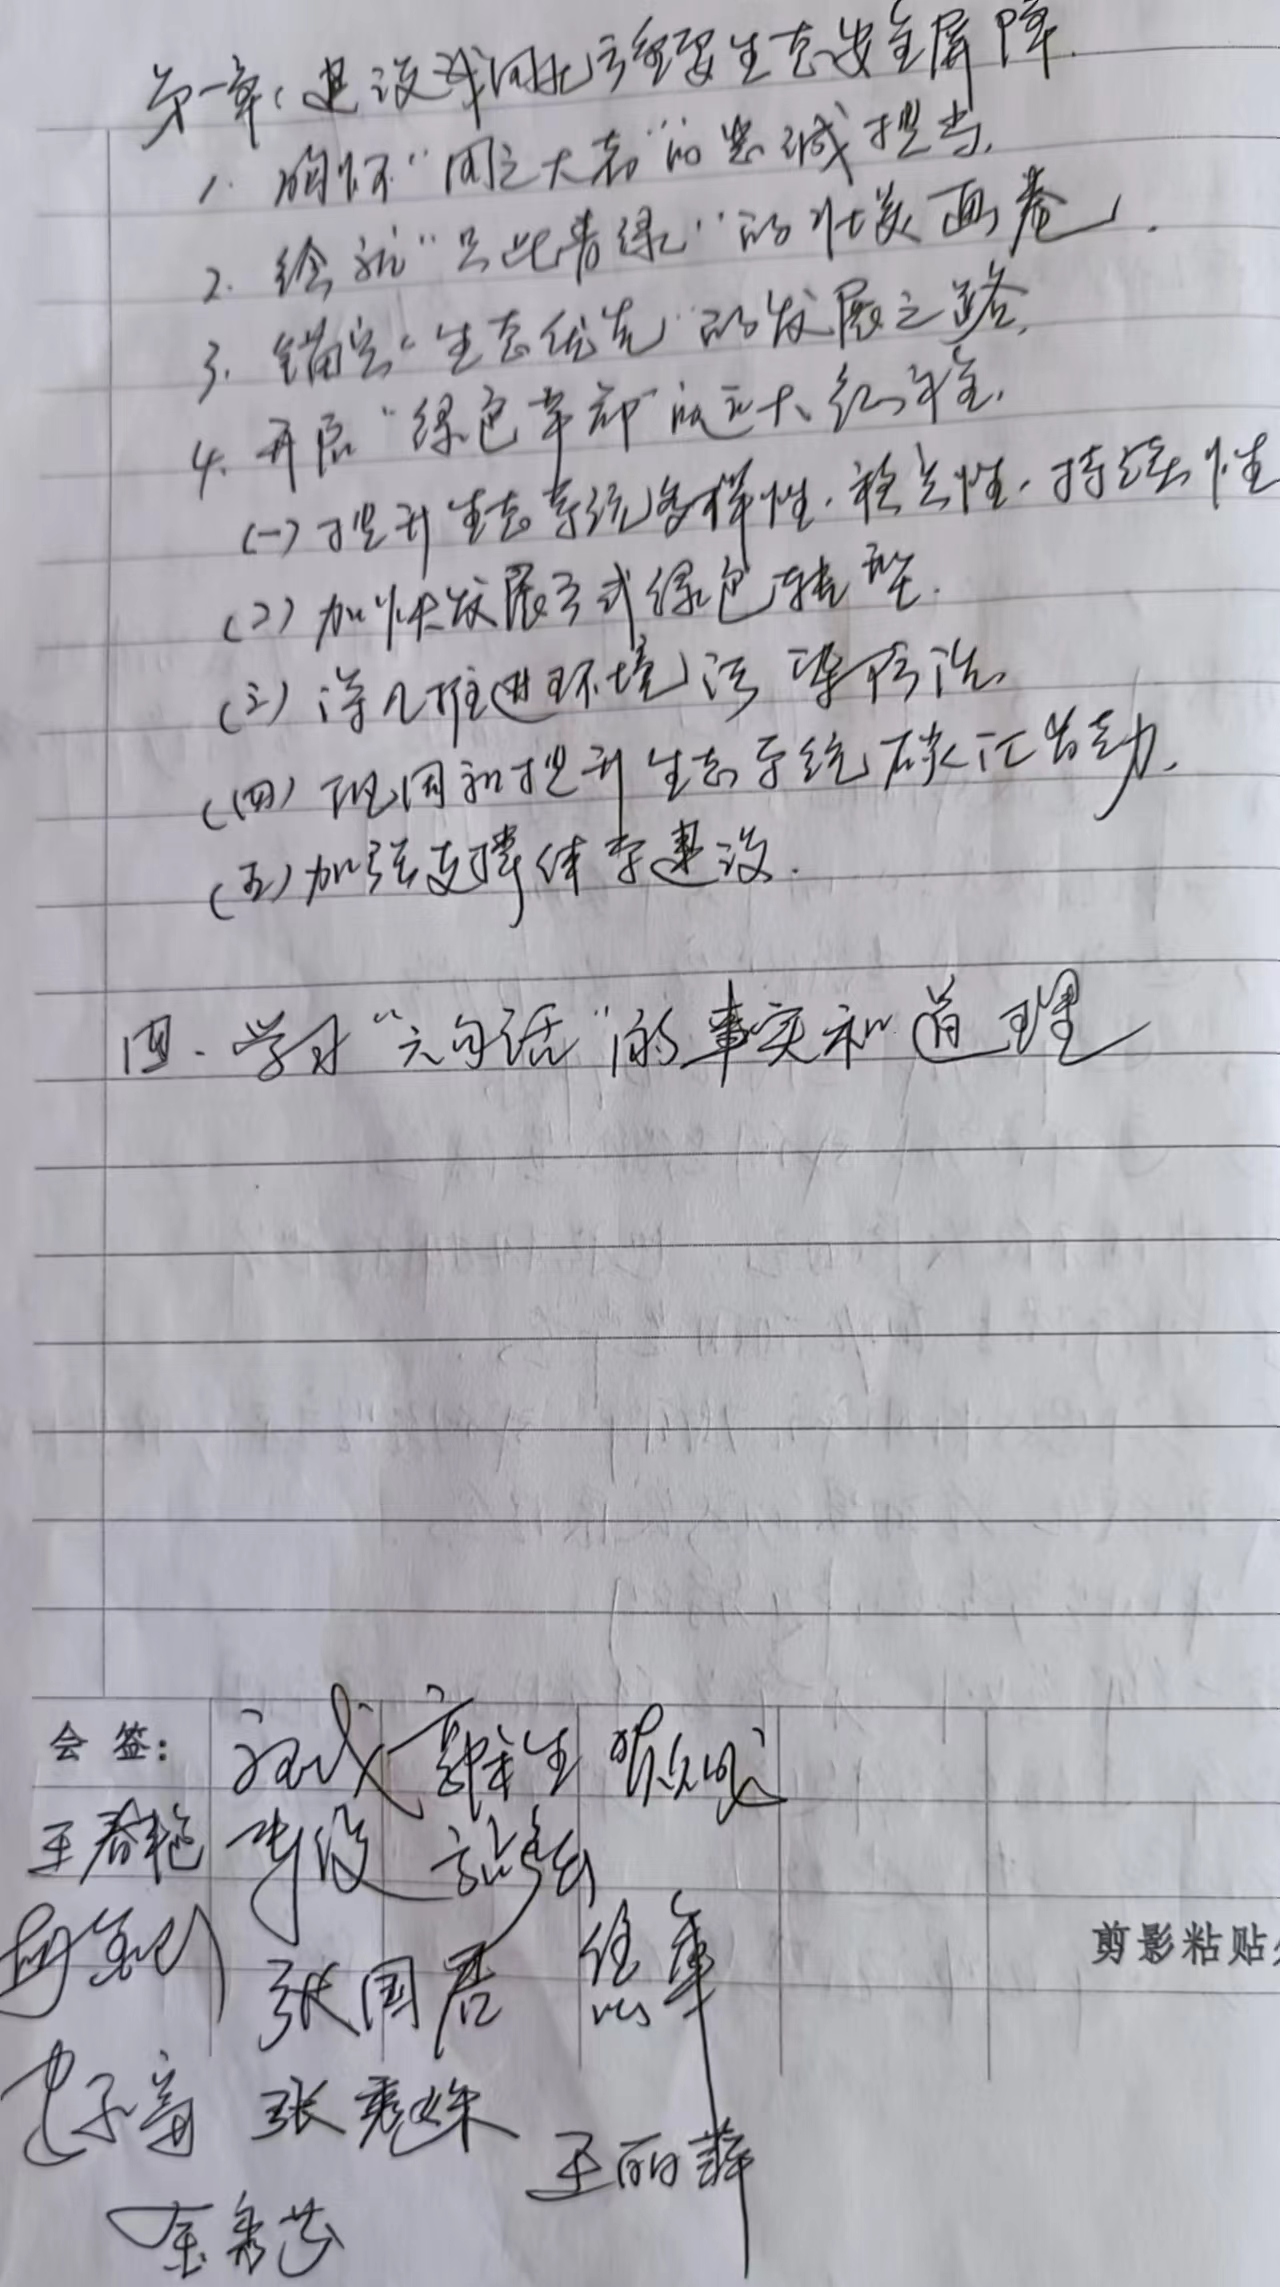 第一章、建设我国北方重要生态安全屏障.
1. 胸怀“国之大者”的忠诚担当.
2. 绘就“只此青绿”的壮美画卷.
3. 锚定“生态优先”的发展之路.
4. 开启“绿色革命”的远大征途.
(一)提升生态系统多样性.稳定性.持续性
(2)加快发展方式绿色转型.
(三)深入推进环境污染防治.
(四)巩固和提升生态系统碳汇能力.
(五)加强支撑体系建设.
四.学习“六句话”的事实和道理
会 签:
王春艳
张国君
张秀姝
王丽萍
剪影粘贴